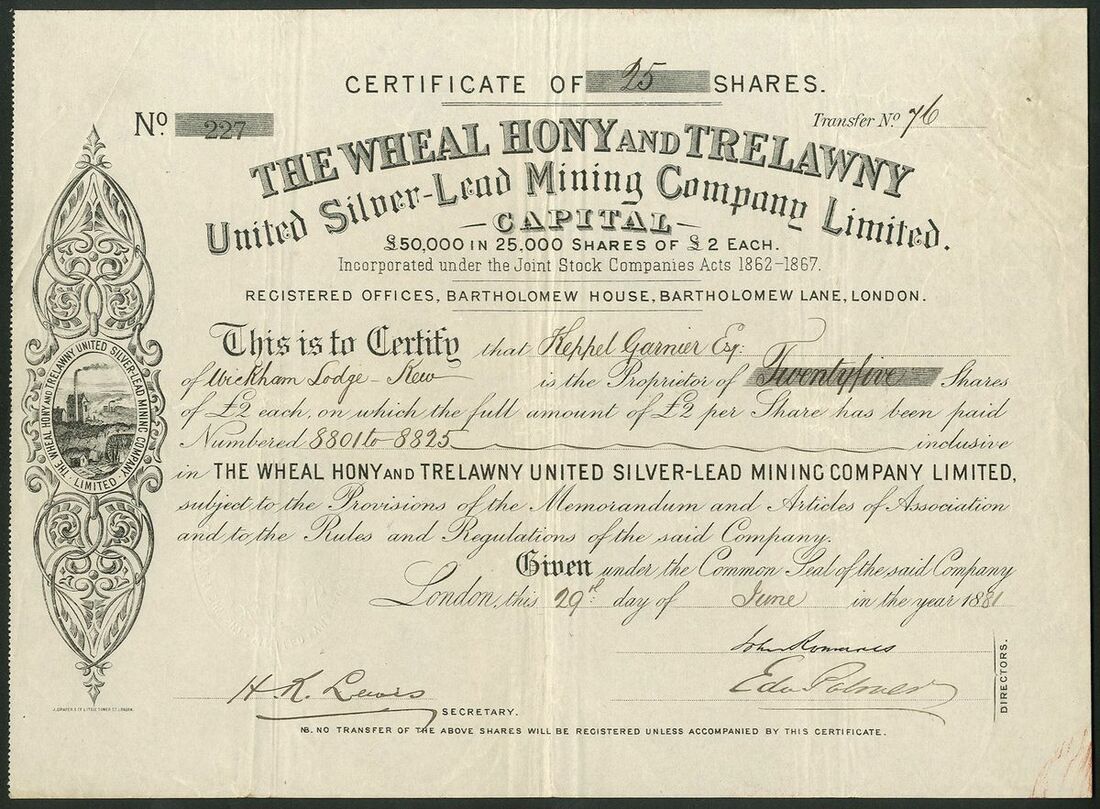 CERTIFICATE OF 25 SHARES.
No 227
Transfer No. 76
THE WHEAL HONY AND TRELAWNY
United Silver-Lead Mining Company Limited.
CAPITAL
£50,000 IN 25.000 SHARES OF £2 EACH.
Incorporated under the Joint Stock Companies Acts 1862-1867.
REGISTERED OFFICES, BARTHOLOMEW HOUSE, BARTHOLOMEW LANE, LONDON.
This is to Certify that Keppel Garnier Esq:
of Wickham Lodge - Kew is the Proprietor of Twentyfive Shares
of £2 each, on which the full amount of £2 per Share has been paid
Numbered 8801 to 8825 inclusive
in THE WHEAL HONY AND TRELAWNY UNITED SILVER-LEAD MINING COMPANY LIMITED,
subject to the Provisions of the Memorandum and Articles of Association
and to the Rules and Regulations of the said Company.
Given under the Common Seal of the said Company
London, this 29th day of June in the year 1881
THE WHEAL HONY AND TRELAWNY UNITED SILVER-LEAD MINING COMPANY LIMITED
John Romanes
H. K. Lewis
SECRETARY.
Edw Palmer
DIRECTORS.
NB. NO TRANSFER OF THE ABOVE SHARES WILL BE REGISTERED UNLESS ACCOMPANIED BY THIS CERTIFICATE.